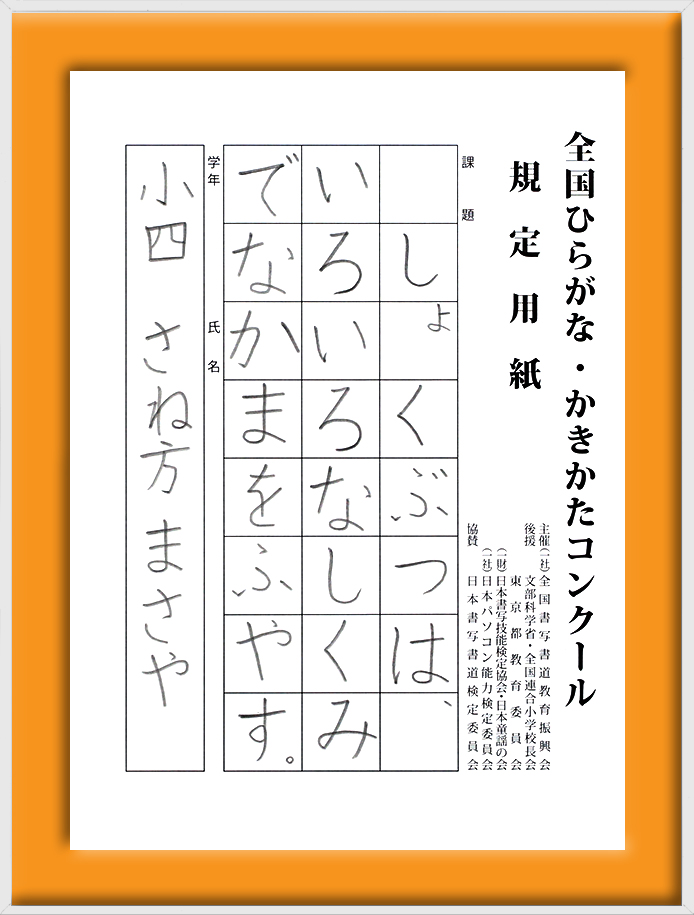 全国ひらがな・かきかたコンクール
規定用紙
主催（一社）全国書写書道教育振興会
後援　文部科学省・全国連合小学校長会
東京都教育委員会
（一財）日本書写技能検定協会・日本童謡の会
（一社）日本パソコン能力検定委員会
協賛　日本書写書道検定委員会
課題
しょくぶつは、
いろいろなしくみ
でなかまをふやす。
学年　氏名
小四　さね方　まさや